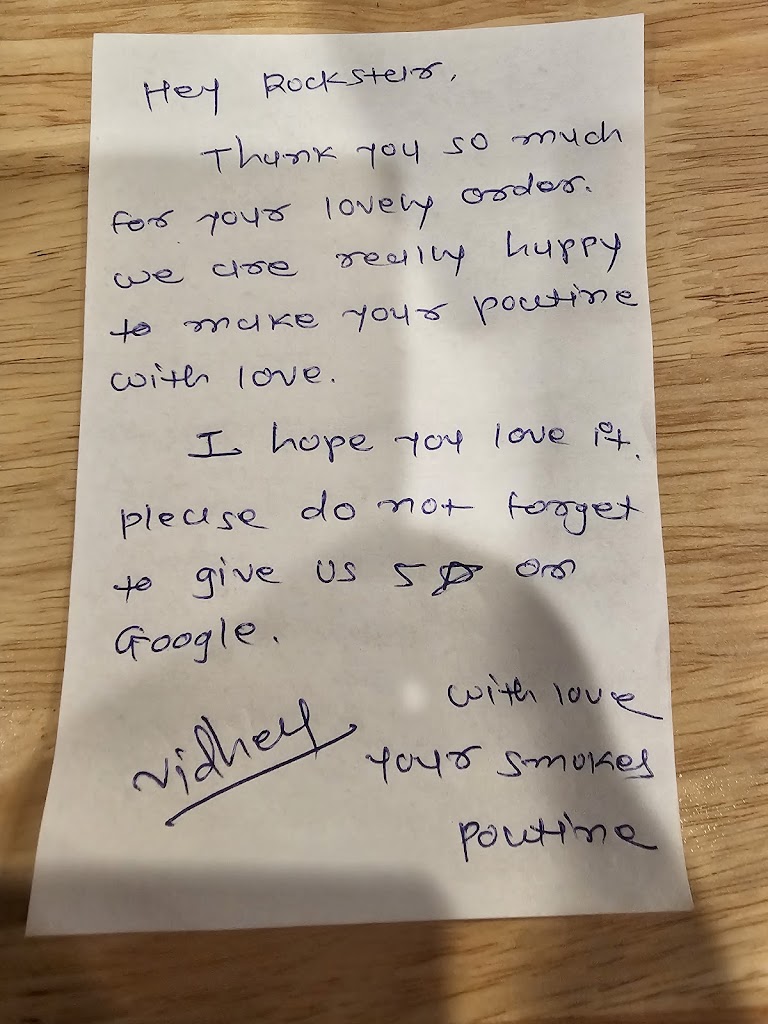 Hey Rockstar,
Thank you so much
for your lovely order.
we are really happy
to make your poutine
with love.
I hope you love it.
please do not forget
to give us 5☆ on
Google.
with love
your smokes
poutine